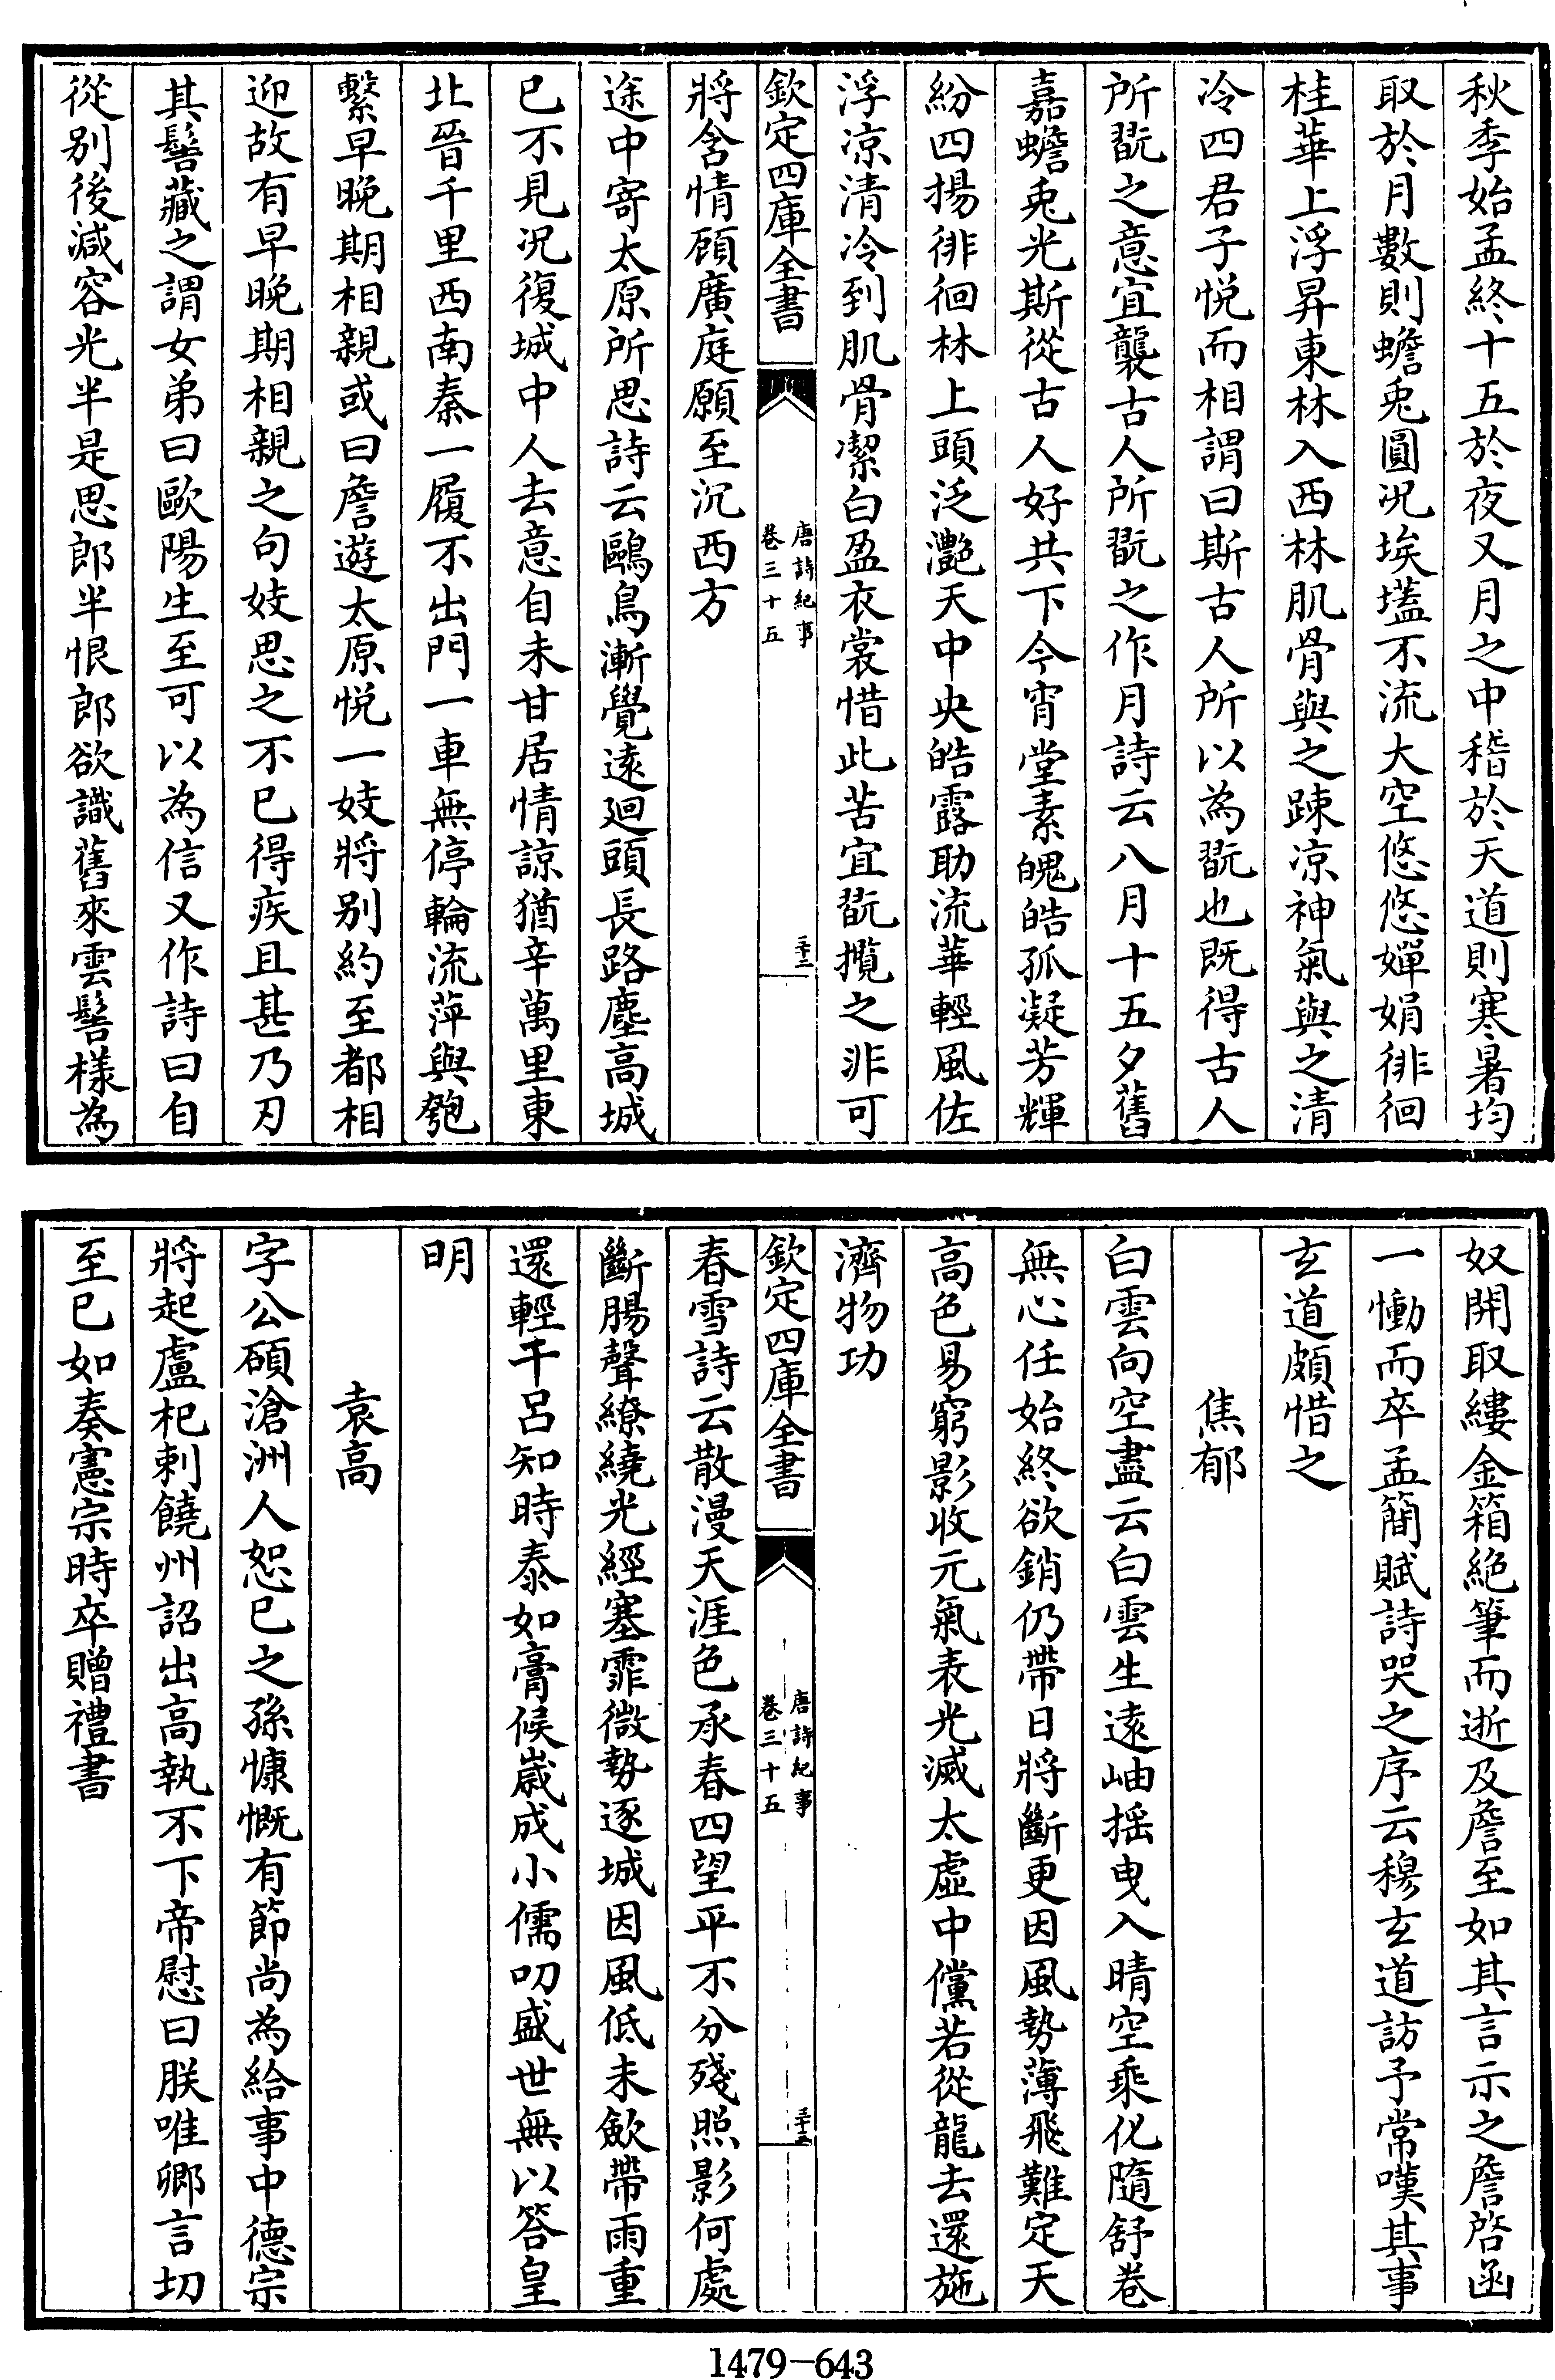 秋季始孟終十五於夜又月之中稽於天道則寒暑均
取於月數則蟾兎圓况埃壒不流大空悠悠嬋娟徘徊
桂華上浮昇東林入西林肌骨與之踈凉神氣與之清
冷四君子悦而相謂曰斯古人所以為翫也既得古人
所翫之意宜襲古人所翫之作月詩云八月十五夕舊
嘉蟾兎光斯從古人好共下今宵堂素魄皓孤凝芳輝
紛四揚徘徊林上頭泛灔天中央皓露助流華輕風佐
浮凉清冷到肌骨潔白盈衣裳惜此苦宜翫攬之非可
將含情顧廣庭願至沉西方
欽定四庫全書
唐詩紀事
卷三十五
三十二
途中寄太原所思詩云鷗鳥漸覺遠廻頭長路塵高城
已不見况復城中人去意自未甘居情諒猶辛萬里東
北晉千里西南秦一履不出門一車無停輪流萍與匏
繫早晚期相親或曰詹遊太原悦一妓將别約至都相
迎故有早晚期相親之句妓思之不已得疾且甚乃刃
其髻藏之謂女弟曰歐陽生至可以為信又作詩曰自
從别後減容光半是思郎半恨郎欲識舊來雲髻様為
奴開取縷金箱絶筆而逝及詹至如其言示之詹啓函
一慟而卒孟簡賦詩哭之序云穆玄道訪予常嘆其事
玄道頗惜之
焦郁
白雲向空盡云白雲生遠岫揺曳入晴空乘化隨舒卷
無心任始終欲銷仍帶日將斷更因風勢薄飛難定天
高色易窮影收元氣表光滅太虛中儻若從龍去還施
濟物功
欽定四庫全書
唐詩紀事
卷三十五
三十三
春雪詩云散漫天涯色承春四望平不分殘照影何處
斷腸聲繚繞光經塞霏微勢逐城因風低未歛帶雨重
還輕干呂知時泰如膏候嵗成小儒叨盛世無以答皇
明
袁高
字公碩滄洲人恕已之孫慷慨有節尚為給事中德宗
將起盧杞刺饒州詔出高執不下帝慰曰朕唯卿言切
至已如奏憲宗時卒贈禮書
1479-643